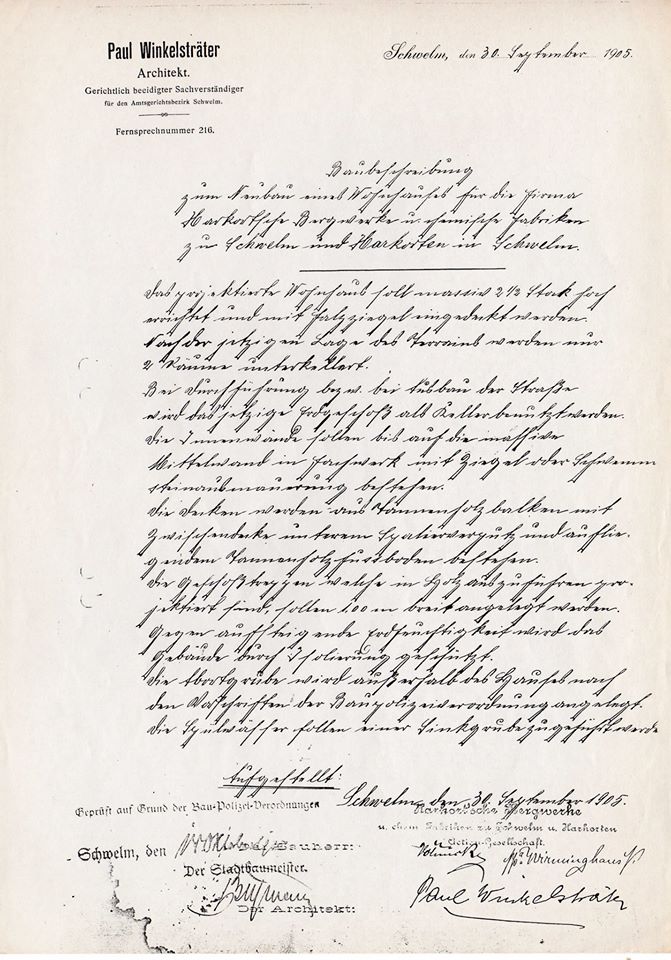 Paul Winkelsträter
Architekt.
Gerichtlich beeidigter Sachverständiger
für den Amtsgerichtsbezirk Schwelm.
Fernsprechnummer 216.
Schwelm, den 30. September 1905.
Baubeschreibung
zum Neubau eines Wohnhauses für die Firma
Harkort'sche Bergwerke u. chemische Fabriken
zu Schwelm und Harkorten in Schwelm.
Das projektierte Wohnhaus soll massiv 2 1/2 Stock hoch
errichtet und mit Falzziegel eingedeckt werden.
Nach der jetzigen Lage des Terrains werden nur
2 Räume unterkellert.
Bei Durchführung bezw. bei Ausbau der Straße
wird das jetzige Erdgeschoß als Keller benutzt werden.
Die Innenwände sollen bis auf die massive
Mittelwand in Fachwerk mit Ziegel oder Schwemm
steinausmauerung bestehen.
Die Decken werden aus Tannenholzbalken mit
Zwischendecke unterem Spalierverputz und auflie-
gendem Tannenholzfussboden bestehen.
Die Geschoßtreppen welche in Holz auszuführen pro-
jektiert sind, sollen 1.00 m breit angelegt werden.
Gegen aufsteigende Erdfeuchtigkeit wird das
Gebäude durch Isolierung geschützt.
Die Abortgrube wird außerhalb des Hauses nach
den Vorschriften der Baupolizeiverordnung angelegt.
Die Spülwässer sollen einer Sinkgrube zugeführt werde
Aufgestellt:
Schwelm, den 30. September 1905.
Geprüft auf Grund der Bau-Polizei-Verordnungen
Harkort'sche Bergwerke
u. chem. Fabriken zu Schwelm u. Harkorten
Actien-Gesellschaft.
Schwelm, den
Bauherr:
Der Stadtbaumeister.
ppa Wirminghaus
Der Architekt:
Paul Winkelsträter